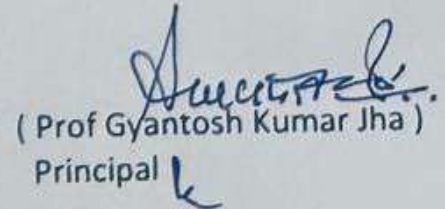 ( Prof Gyantosh Kumar Jha )
Principal